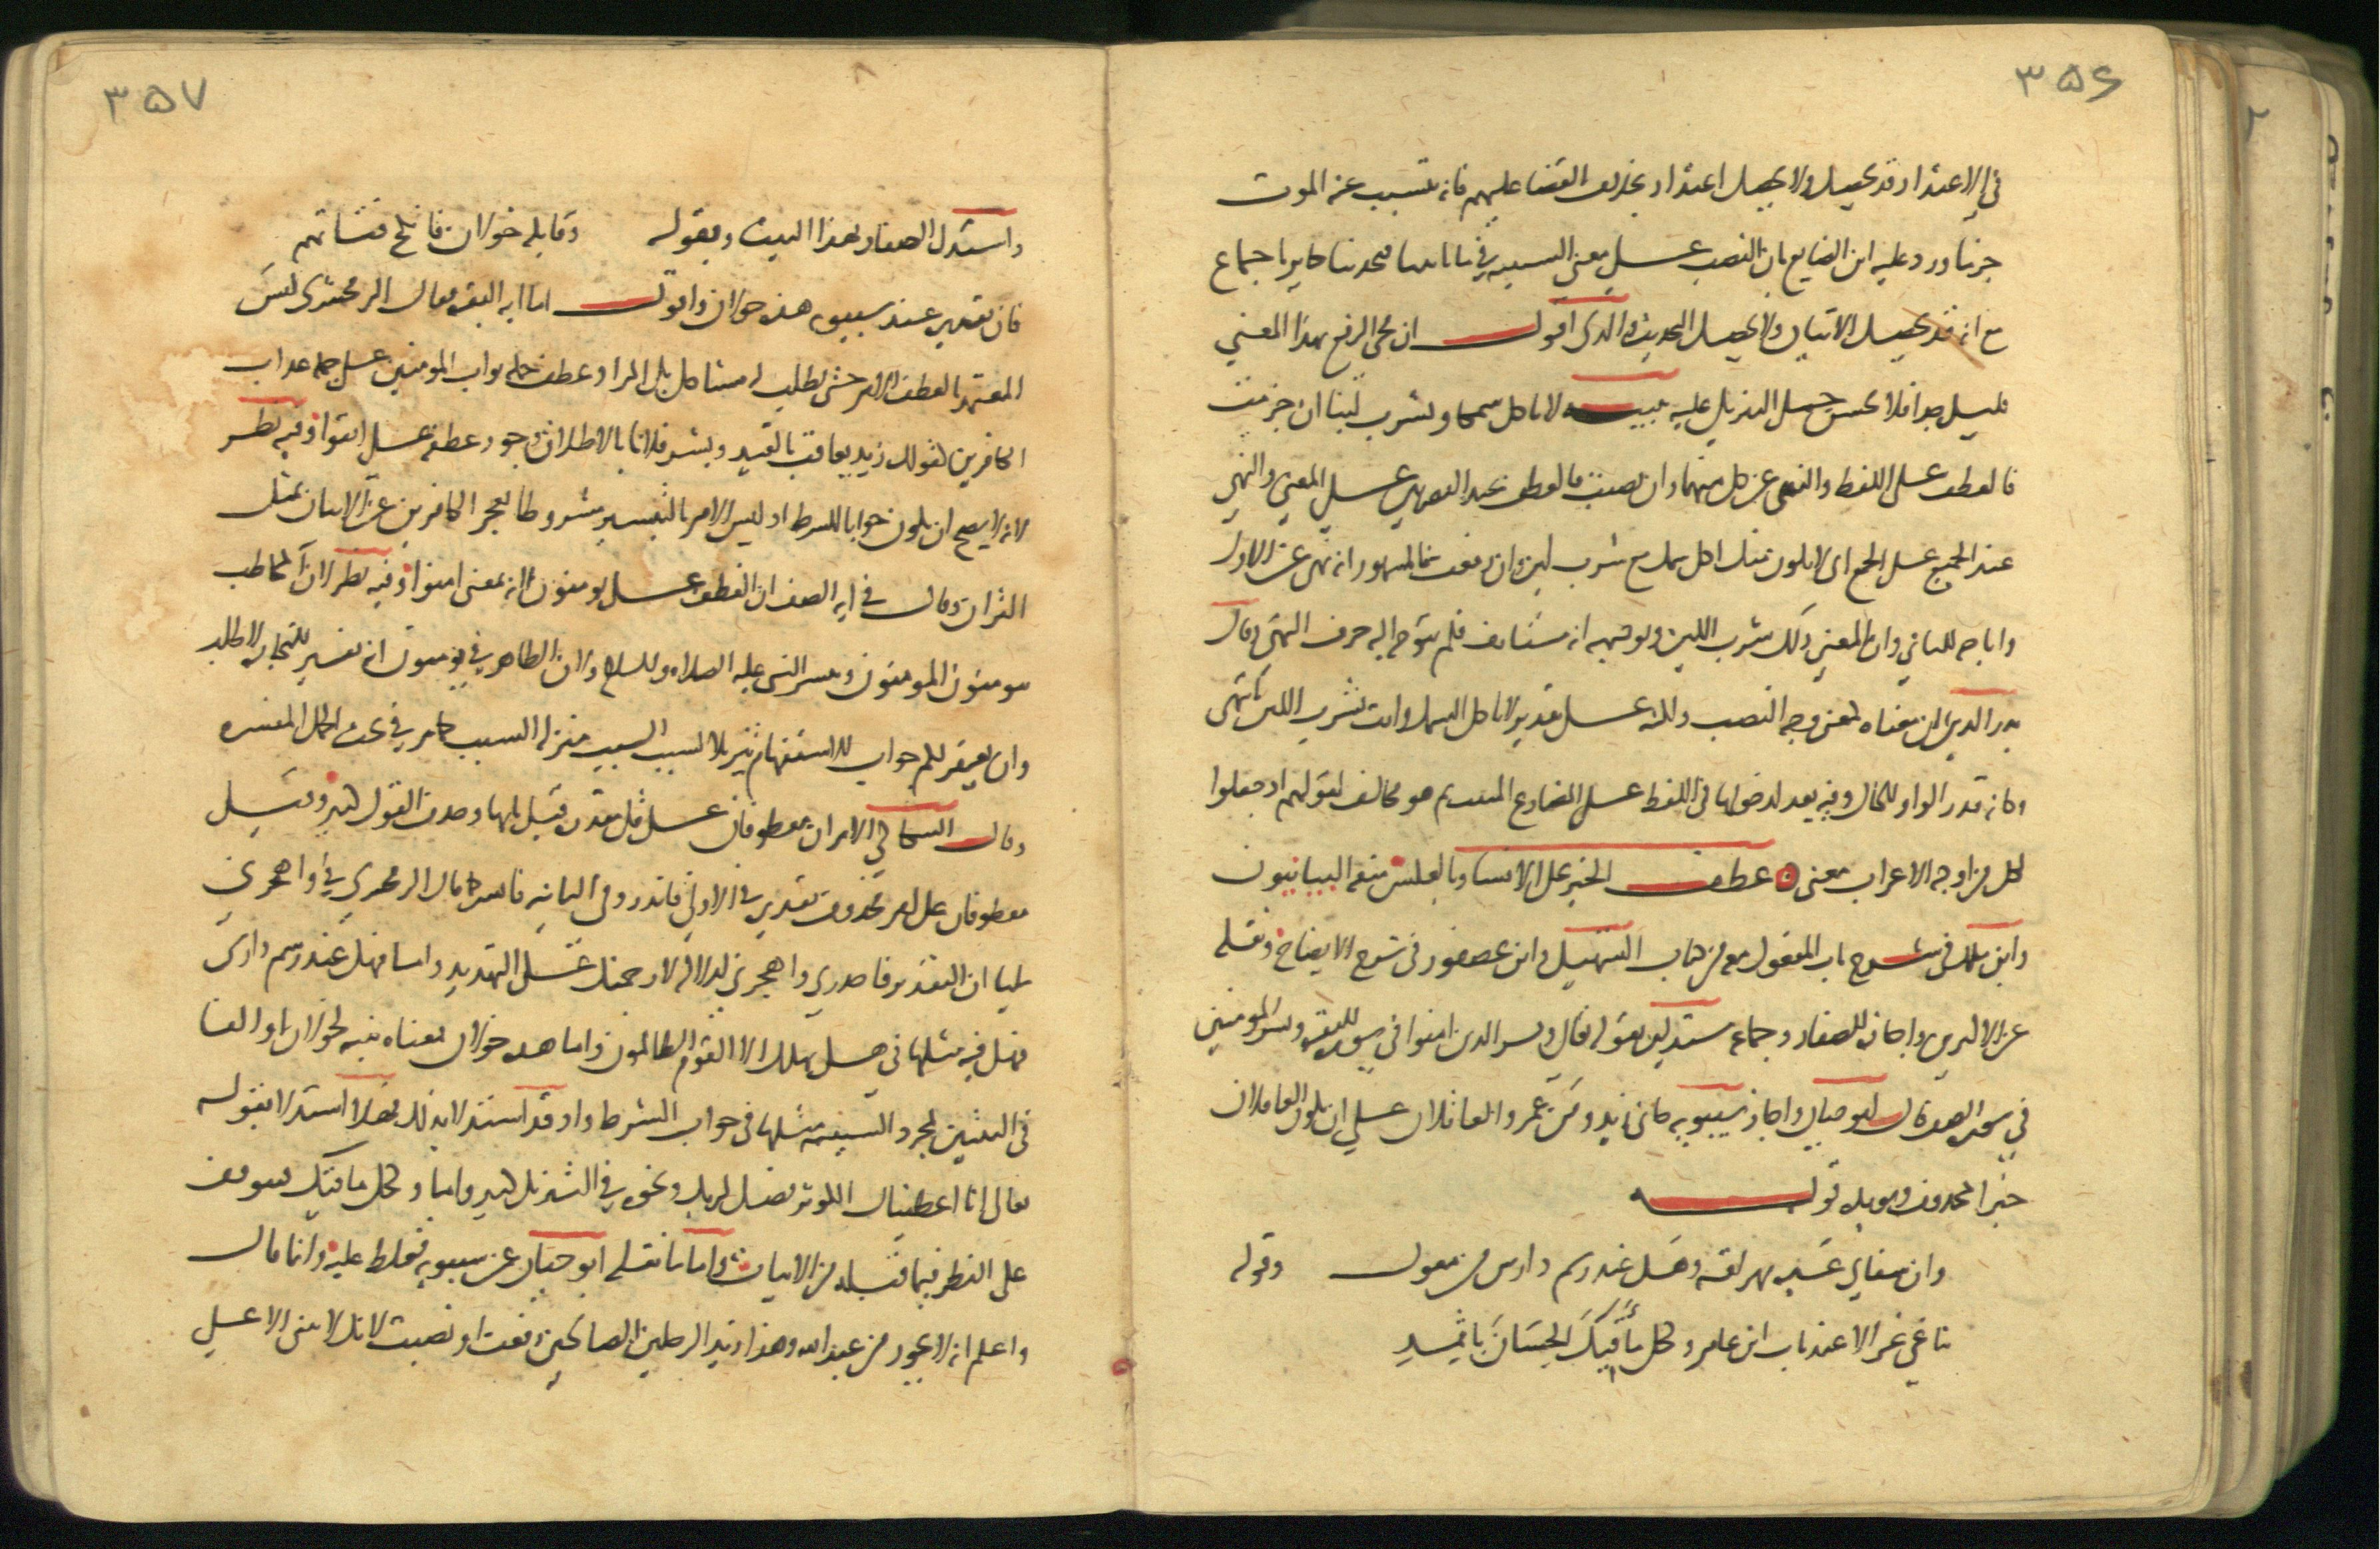 ٣٥٦
في الاعتذار قد يحصل ولا يحصل اعتذار بخلاف القضا عليهم فانه يتسبب عنه الموت
جزما ورد عليه ابن الضايع بان النصب على معنى السببية في ما تاتينا فتحدثنا جايز باجماع
مع انه قد يحصل الاتيان ولا يحصل التحديث والذي اقول ان مجي الرفع بهذا المعنى
قليل جدا فلا يحسن حمل التنزيل عليه تنبيه لا تاكل سمكا وتشرب لبنا ان جزمت
فالعطف على اللفظ والنهي عن كل منهما وان نصبت فالعطف عند البصريين على المعنى والنهي
عند الجميع على الجمع اي لا يكون منك اكل سمك مع شرب لبن وان رفعت فالمشهور انه نهي عن الاول
واباحة للثاني وان المعنى ولك شرب اللبن وتوجيهه انه مستانف فلم يتوجه اليه حرف النهي وقال
بدر الدين ان معناه كمعنى وجه النصب ولكنه على تقدير لا تاكل السمك وانت تشرب اللبن انتهى
وكانه قدر الواو للحال وفيه بعد لدخولها في اللفظ على المضارع المثبت ثم هو مخالف لقولهم اذ جعلوا
لكل من اوجه الاعراب معنى عطف الخبر على الانشا وبالعكس منعه البيانيون
وابن مالك في شرح باب المفعول معه من كتاب التسهيل وابن عصفور في شرح الايضاح ونقله
عن الاكثرين واجازه الصفار وجماعة مستدلين بقوله تعالى وبشر الذين امنوا في سورة البقرة وبشر المومنين
في سورة الصف قال ابو حيان واجاز سيبويه جاني زيد ومن عمرو العاقلان على ان يكون العاقلان
خبرا لمحذوف ويويده قوله
وان شفاي عبرة مهراقة وهل عند رسم دارس من معول وقوله
تناغي غزالا عند باب ابن عامر وكحل مآقيك الحسان باثمد
٣٥٧
واستدل الصفار بهذا البيت وبقوله وقايلة خولان فانكح فتاتهم
فان تقديره عند سيبويه هذه خولان واقول اما اية البقرة فقال الزمخشري ليس
المعتمد بالعطف الامر حتى يطلب له مشاكل بل المراد عطف جملة ثواب المومنين على جملة عذاب
الكافرين كقولك زيد يعاقب بالقيد وبشر فلانا بالاطلاق وجوز عطفه على اتقوا وفيه نظر
لانه لا يصح ان يكون جوابا للشرط اذ ليس الامر بالتبشير مشروطا بعجز الكافرين عن الاتيان بمثل
القران وقال في اية الصف ان العطف على تومنون لانه بمعنى امنوا وفيه نظر لان المخاطب
بتومنون المومنون وببشر النبي عليه الصلاة والسلام ولان الظاهر في تومنون انه تفسير للتجارة لا طلب
وان يغفر لكم جواب للاستفهام تنزيلا لسبب السبب منزلة السبب كما مر في بحث الجمل المفسرة
وقال السكاكي الامران معطوفان على قل مقدرة قبل يايها وحذف القول كثير وقيل
معطوفان على امر محذوف تقديره في الاولى فانذر وفي الثانية فابشر كما قال الزمخشري في واهجرني
مليا ان التقدير فاحذرني واهجرني لدلالة لارجمنك على التهديد واما وهل عند رسم دارس
فهل فيه مثلها في هل يهلك الا القوم الظالمون واما هذه خولان فمعناه تنبه لخولان او الفا
في البيتين لمجرد السببية مثلها في جواب الشرط واذ قد استدلا بذلك فهلا استدلا بقوله
تعالى انا اعطيناك الكوثر فصل لربك ونحوه في التنزيل كثير واما وكحل مآقيك فيتوقف
على النظر فيما قبله من الابيات واما ما نقله ابو حيان عن سيبويه فغلط عليه وانما قال
واعلم انه لا يجوز من عبد الله وهذا زيد الرجلين الصالحين رفعت او نصبت لانك لا تثني الا على